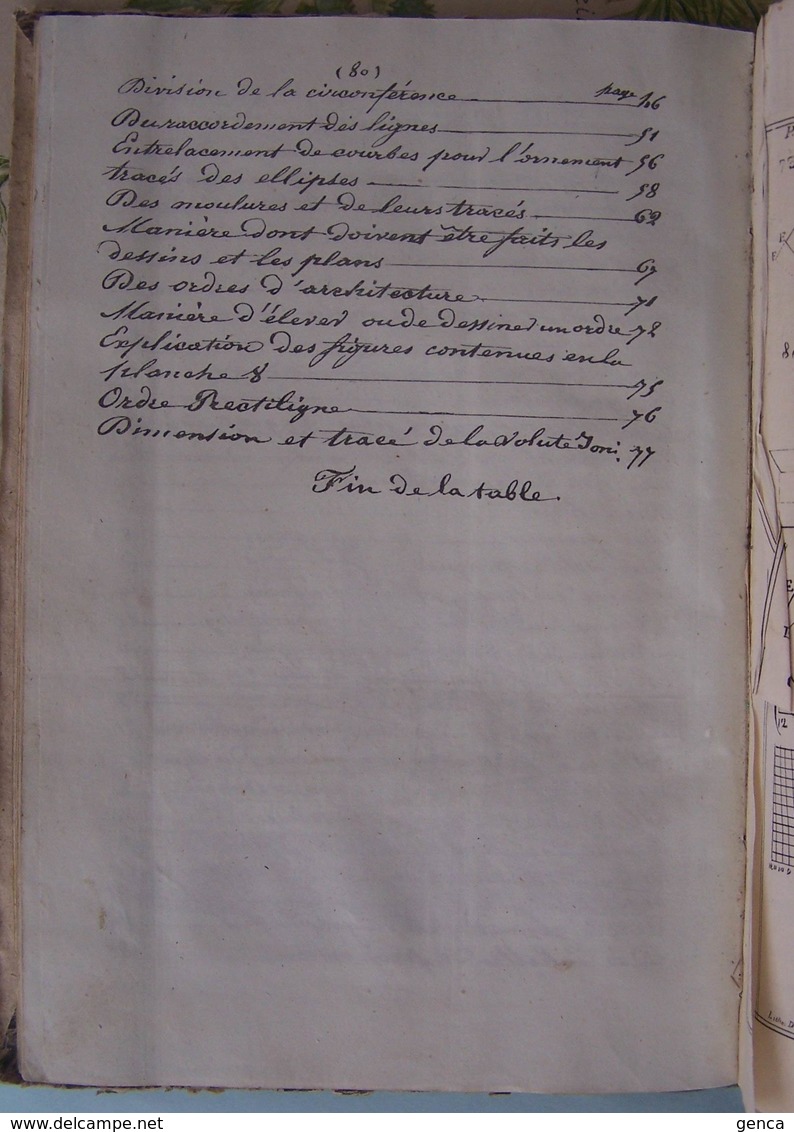 (80)
Division de la circonférence page 46
Du raccordement des lignes 51
Entrelacement de courbes pour l'ornement 56
tracés des ellipses 58
Des moulures et de leurs tracés 62
Manière dont doivent être faits les
dessins et les plans 67
Des ordres d'architecture 71
Manière d'élever ou de dessiner un ordre 72
Explication des figures contenues en la
planche 8 75
Ordre Rectiligne 76
Dimension et tracé de la volute Ioni. 77
Fin de la table.
12
© delcampe.net
genca